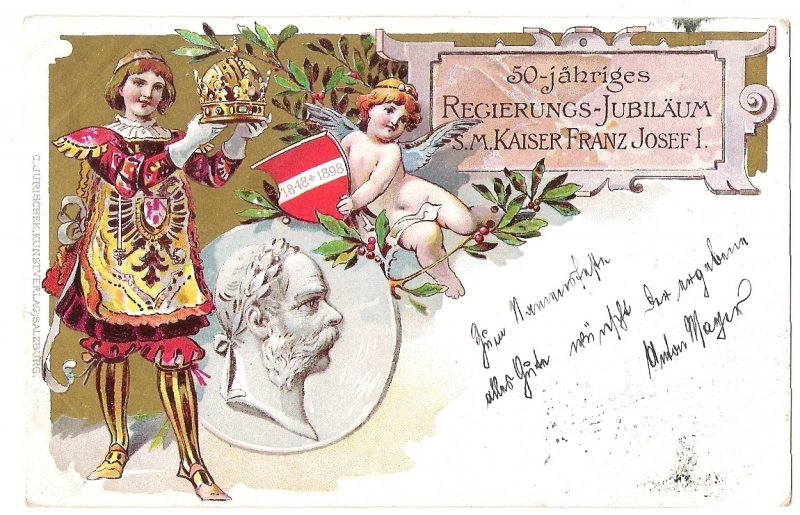 50-jähriges
REGIERUNGS-JUBILÄUM
S. M. KAISER FRANZ JOSEF I.
1848*1898
C. JURISCHEK, KUNSTVERLAG, SALZBURG.
Zum Namensfeste
alles Gute wünscht der ergebene
Anton Mayer